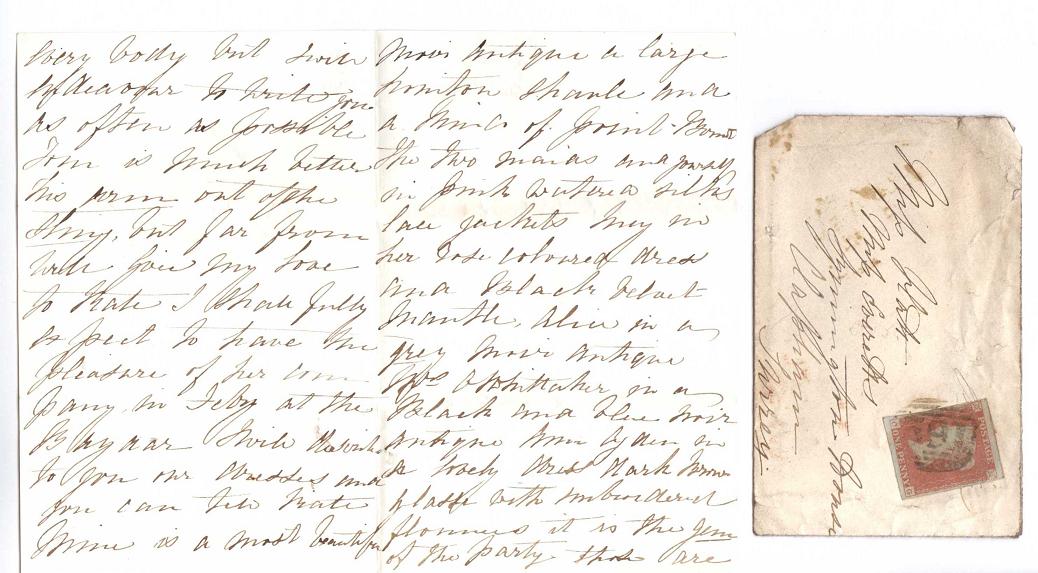 every body but I will
endeavour to write you
as often as possible
Tom is much better
his arm out of the
sling, but far from
well give my love
to Kate I shall fully
expect to have the
pleasure of her com
pany in Feby at the
Bazaar I will describe
to you our dresses and
you can tell Kate
Mine is a most beautiful
Moiré Antique a large
honiton Shawl and
a of point
the two maids and
in pink watered silks
lace jackets Mey in
her rose coloured dress
and Black velvet
Mantle, Alice in a
grey moiré antique
Mrs Whittaker in a
Black and blue moir
antique in
a lovely dress dark brown
glasse with embroidered
flounces it is the gem
of the party those are
Miss Platt
Miss
House
Clapham
Surrey
POSTAGE
ONE PENNY